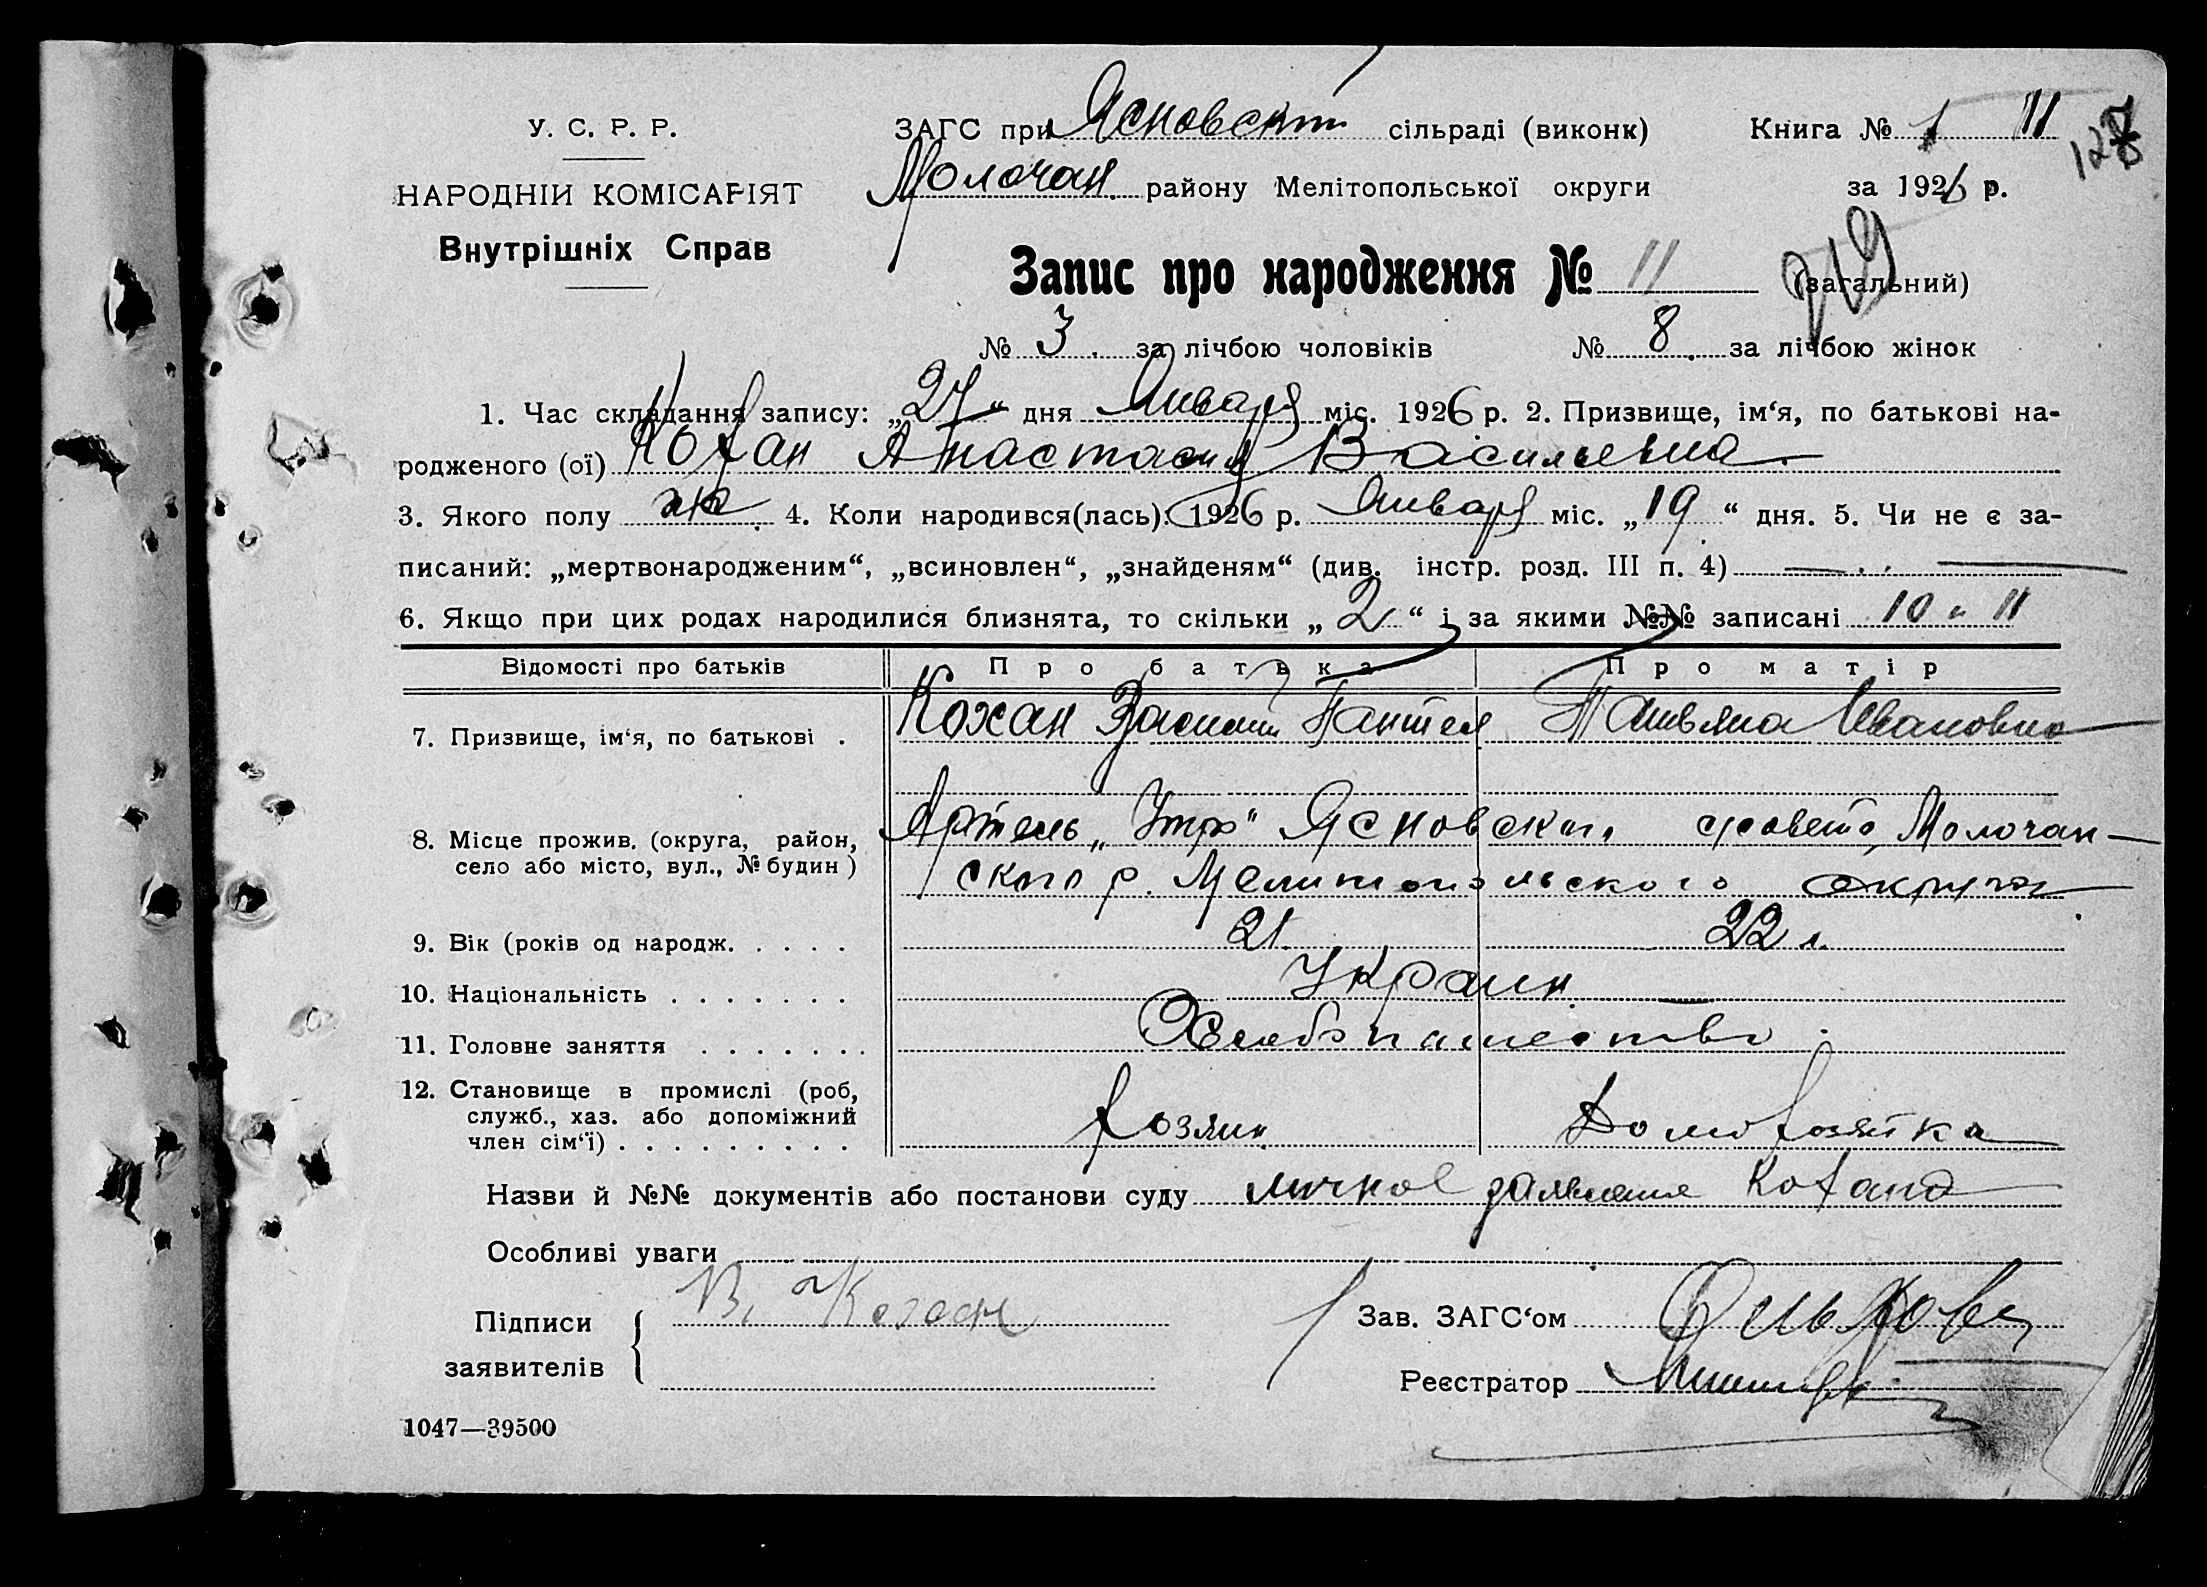 У. С. Р. Р.
НАРОДНІЙ КОМІСАРІЯТ
Внутрішніх Справ
ЗАГС при Ясновском сільраді (виконк) Книга № 1 11
Молочан. району Мелітопольської округи за 1926 р.
Запис про народження № 11 (загальний)
219
№ 3. за лічбою чоловіків № 8. за лічбою жінок
1. Час складання запису: „27“ дня Января міс. 1926 р. 2. Призвище, ім‘я, по батькові на-
родженого (ої) Кохан Анастасия Васильевна
3. Якого полу ж. 4. Коли народився(лась). 1926 р. Января міс. „19“ дня. 5. Чи не є за-
писаний: „мертвонародженим“, „всиновлен“, „знайденям“ (див. інстр. розд. III п. 4) —
6. Якщо при цих родах народилися близнята, то скільки „2“ і за якими №№ записані 10 и 11
Відомості про батьків Про батька Про матір
7. Призвище, ім‘я, по батькові . Кохан Василий Пантел Татьяна Ивановна
8. Місце прожив. (округа, район, село або місто, вул., № будин) Артель „Утро“ Ясновского сросвета, Молочан-
ского р. Мелитопольского округа
9. Вік (років од народж. . . . . 21. 22 л.
10. Національність . . . . . . . Украин. —
11. Головне заняття . . . . . . . Хлебопашество
12. Становище в промислі (роб, служб., хаз. або допоміжний член сім‘ї) . . . . . . . . . Хозяин Домохозяйка
Назви й №№ документів або постанови суду личное заявление Кохана
Особливі уваги
Підписи заявителів В. Кохан
Зав. ЗАГС‘ом
Реєстратор
1047—39500